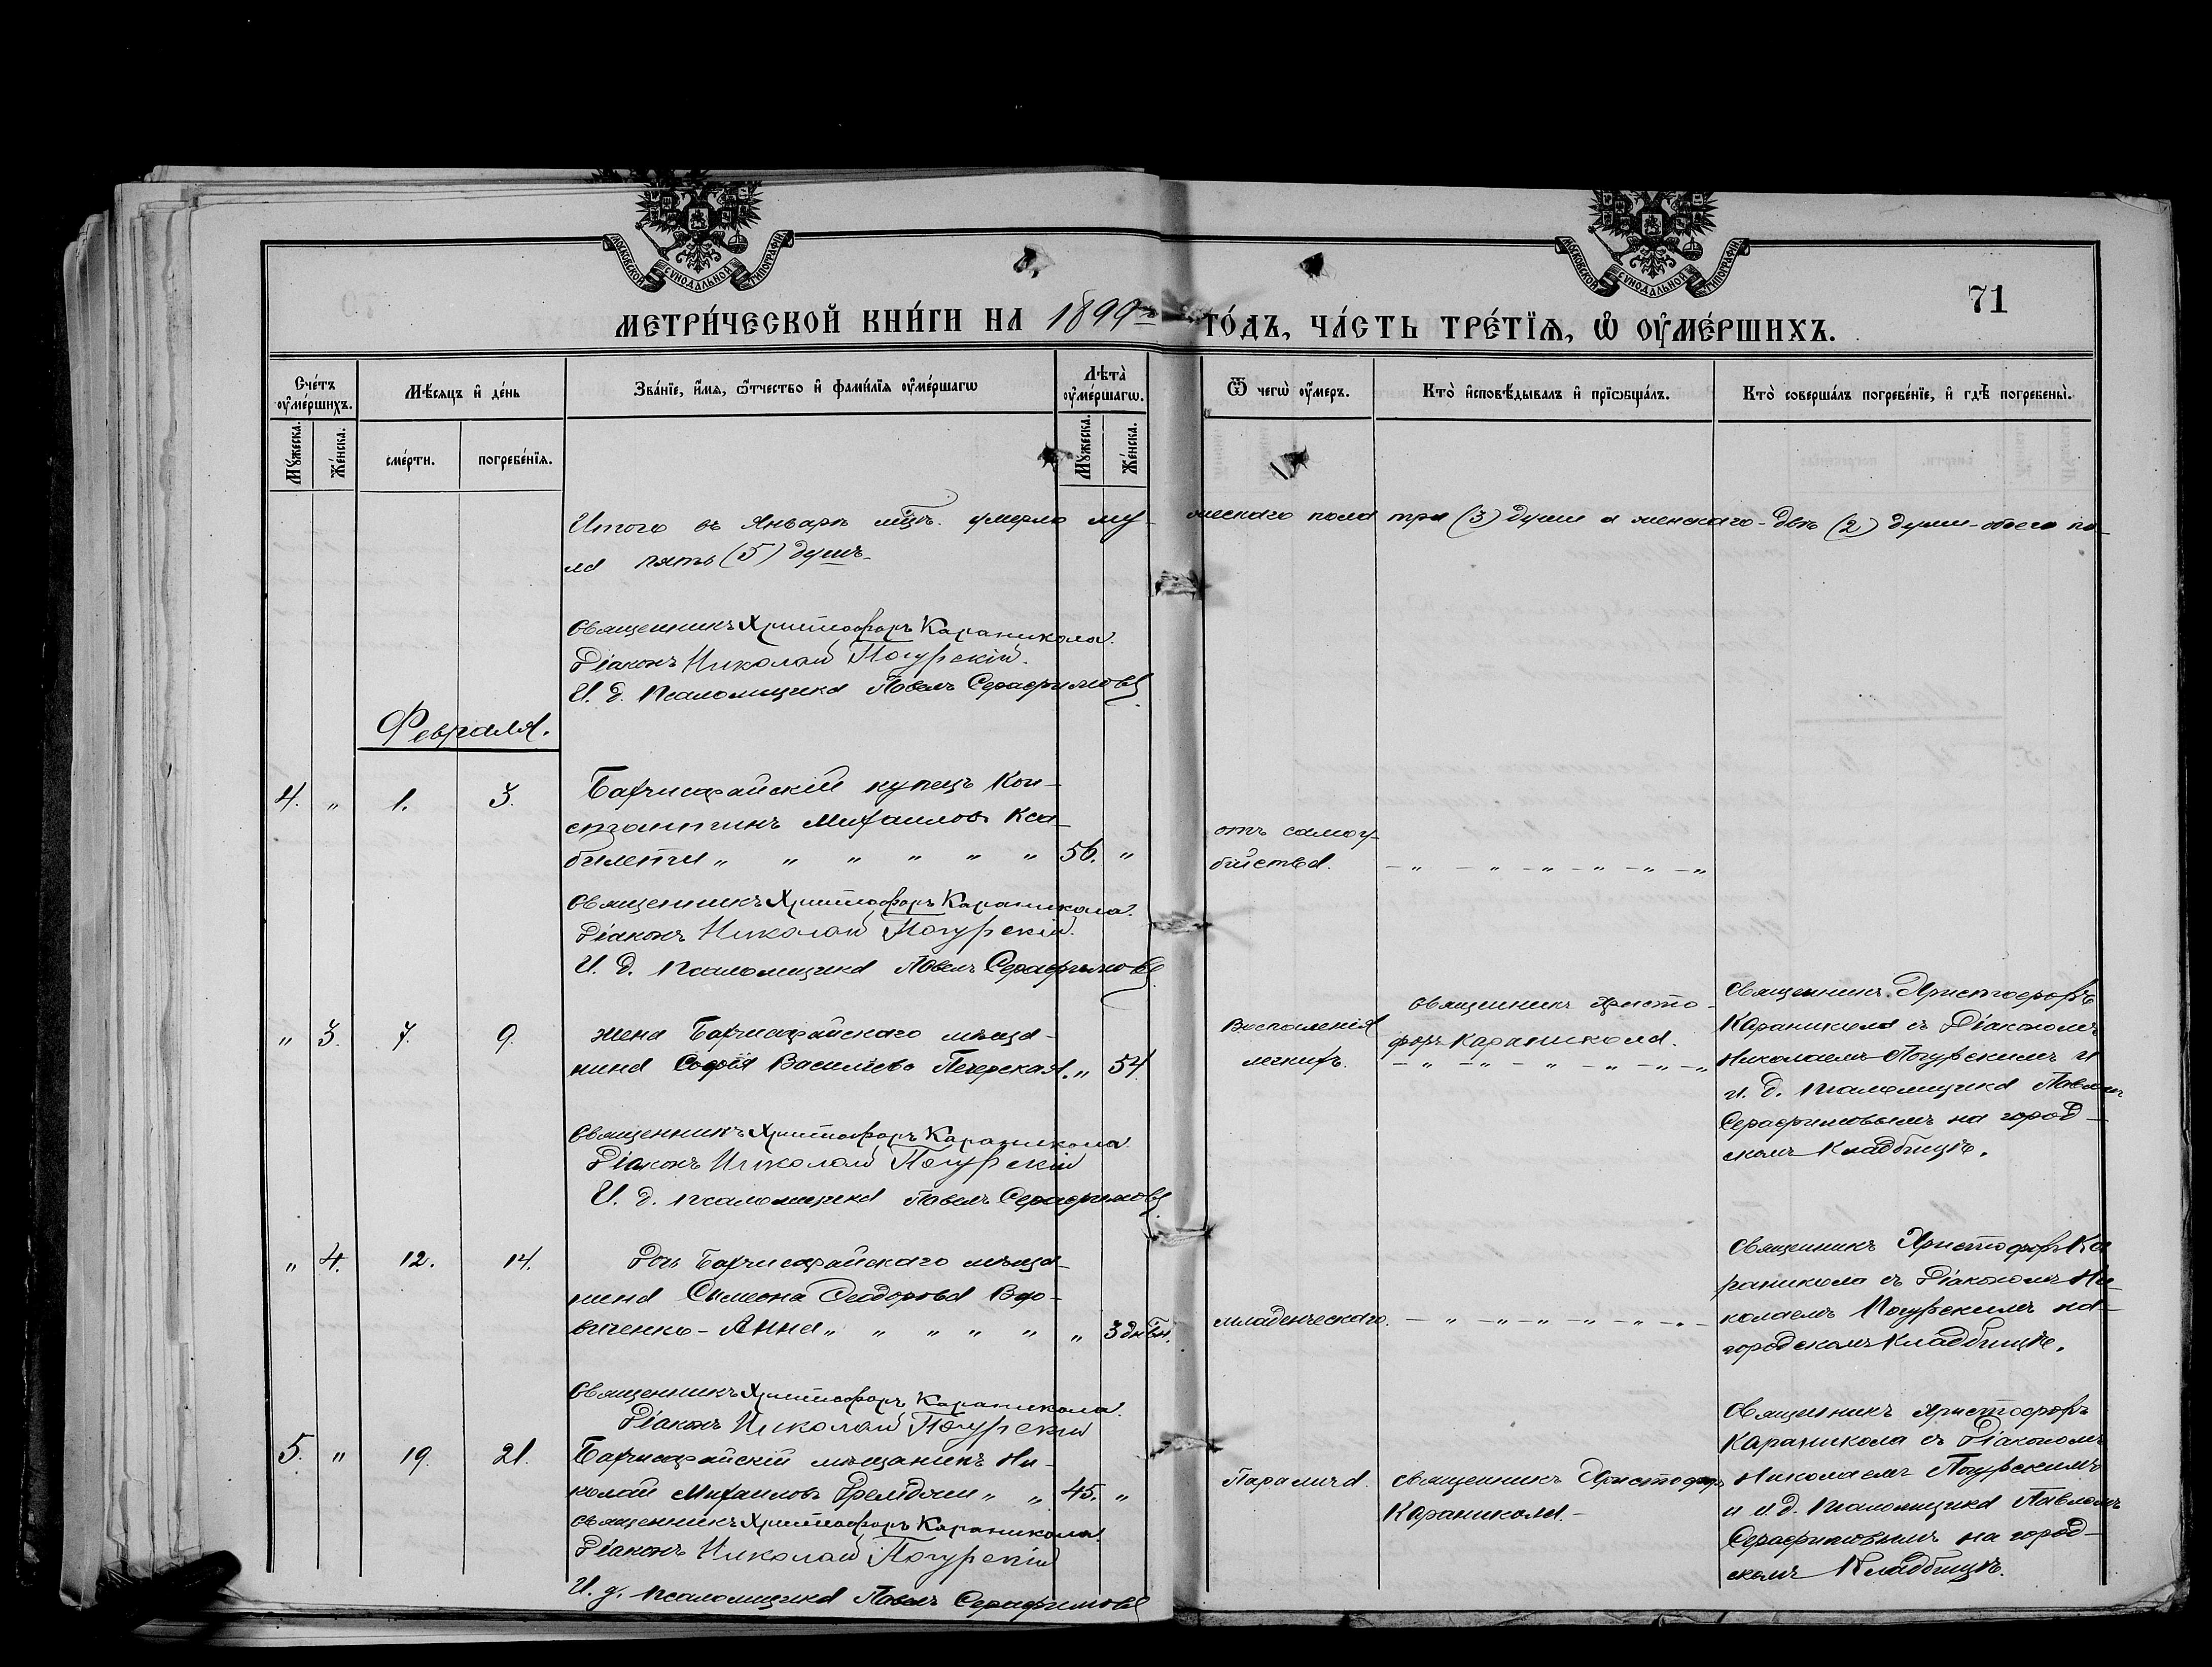 МОСКОВСКОЙ СѴНОДАЛЬНОЙ ТИПОГРАФІИ
МОСКОВСКОЙ СѴНОДАЛЬНОЙ ТИПОГРАФІИ
71
МЕТРИ́ЧЕСКОЙ КНИ́ГИ НА 1899 ГО́ДЪ, ЧА́СТЬ ТРЕ́ТЇѦ, Ѡ҆ ОУ҆МЕ́РШИХЪ.
Сче́тъ оу҆ме́ршихъ.
Мѣ́сяцъ и҆ де́нь
Зва́нїе, и҆́мѧ, ѻ҆́тчество и҆ фами́лїѧ оу҆ме́ршагѡ
Лѣта̀ оу҆ме́ршагѡ.
Ѿ чегѡ̀ оу҆́меръ.
Кто̀ и҆сповѣ́дывалъ и҆ прїѡбща́лъ.
Кто̀ соверша́лъ погребе́нїе, и҆ гдѣ̀ погребены̀.
Мꙋ́жеска.
Же́нска.
сме́рти.
погребе́нїѧ.
Мꙋ́жеска.
Же́нска.
Итого въ Январѣ мцѣ. умерло мужескаго пола три (3) души а женскаго - двѣ (2) души - обоего по-
ла пять (5) душъ
Священникъ Христофоръ Караникола.
Діаконъ Николай Погурскій.
И. д. псаломщика Павелъ Серафимовъ
Февраля.
4. „ 1. 3. Бахчисарайскій купецъ Кон-
стантинъ Михаиловъ
„ „ „ „ „ „ 56. „
отъ само у-
бійства.
Священникъ Христофоръ Караникола.
Діаконъ Николай Погурскій.
И. д. псаломщика Павелъ Серафимовъ
„ 3. 7. 9. жена Бахчисарайскаго мѣща-
нина Софія Васильева Печерская. „ 54
Воспаленія
легкихъ.
Священникъ Христо-
форъ Караникола.
Священникъ Христофоръ
Караникола съ Діакономъ
Николаемъ Погурскимъ и
и. д. псаломщика Павломъ
Серафимовымъ на город-
скомъ кладбищѣ.
Священникъ Христофоръ Караникола
Діаконъ Николай Погурскій
И. д. псаломщика Павелъ Серафимовъ
„ 4. 12. 14. Дочь Бахчисарайскаго мѣща-
нина Симеона Феодорова Вдо-
виченко - Анна „ „ „ „ „ „ 3 дн.
младенческаго.
Священникъ Христофоръ Ка-
раникола съ Діакономъ Ни-
колаемъ Погурскимъ на
городскомъ кладбищѣ.
Священникъ Христофоръ Караникола.
Діаконъ Николай Погурскій
5. „ 19. 21. Бахчисарайскій мѣщанинъ Ни-
колай Михаиловъ „ „ 45. „
Паралича.
Священникъ Христофоръ
Караникола.
Священникъ Христофоръ
Караникола съ Діакономъ
Николаемъ Погурскимъ
и и. д. псаломщика Павломъ
Серафимовымъ на город-
скомъ кладбищѣ.
Священникъ Христофоръ Караникола.
Діаконъ Николай Погурскій
И. д. псаломщика Павелъ Серафимовъ